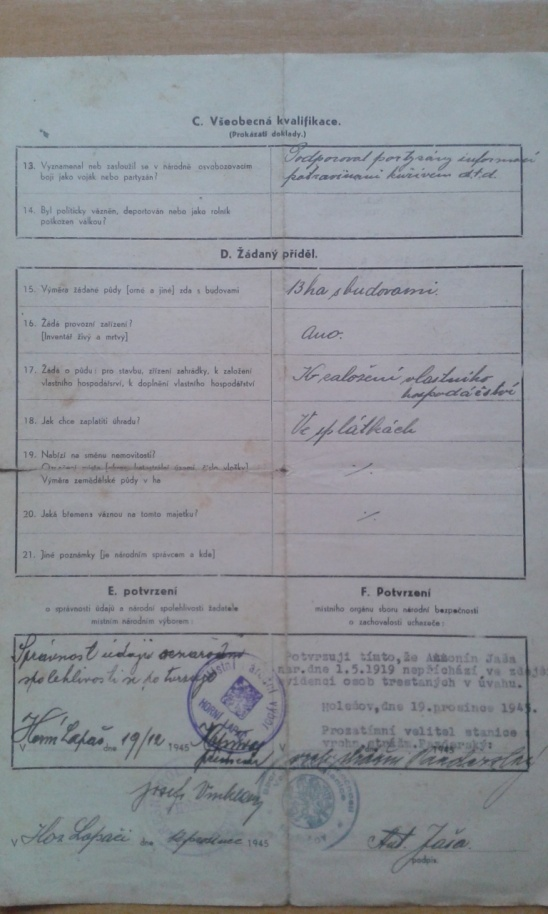 C. Všeobecná kvalifikace.
(Prokázati doklady.)
13. Vyznamenal neb zasloužil se v národně osvobozovacím
boji jako voják nebo partyzán?
Podporoval partyzány informací
potravinami kuřivem atd.
14. Byl politicky vězněm, deportován nebo jako rolník
poškozen válkou?
D. Žádaný příděl.
15. Výměra žádané půdy [orné a jiné] zda s budovami
13 ha s budovami.
16. Žádá provozní zařízení?
[Inventář živý a mrtvý]
ano.
17. Žádá o půdu: pro stavbu, zřízení zahrádky, k založení
vlastního hospodářství, k doplnění vlastního hospodářství
K založení vlastního
hospodářství
18. Jak chce zaplatiti úhradu?
Ve splátkách
19. Nabízí na směnu nemovitosti?
Výměra zemědělské půdy v ha
·/.
20. Jaká břemena váznou na tomto majetku?
·/.
21. Jiné poznámky [je národním správcem a kde]
E. potvrzení
o správnosti údajů a národní spolehlivosti žadatele
místním národním výborem:
F. Potvrzení
místního orgánu sboru národní bezpečnosti
o zachovalosti uchazeče:
Správnost údajů a národní
spolehlivosti se potvrzuje
V Horní Lapač dne 19/12 1945
místní národní výbor
HORNÍ LAPAČ
Potvrzuji tímto, že Antonín Jaša
nar. dne 1.5.1919 nepřichází ve zdejší
evidenci osob trestaných v úvahu.
Holešov, dne 19. prosince 1945.
Prozatímní velitel stanice
vrchn. strážm.
V 1945
Josef
V Hor Lapači dne prosince 1945
Ant. Jaša.
podpis.